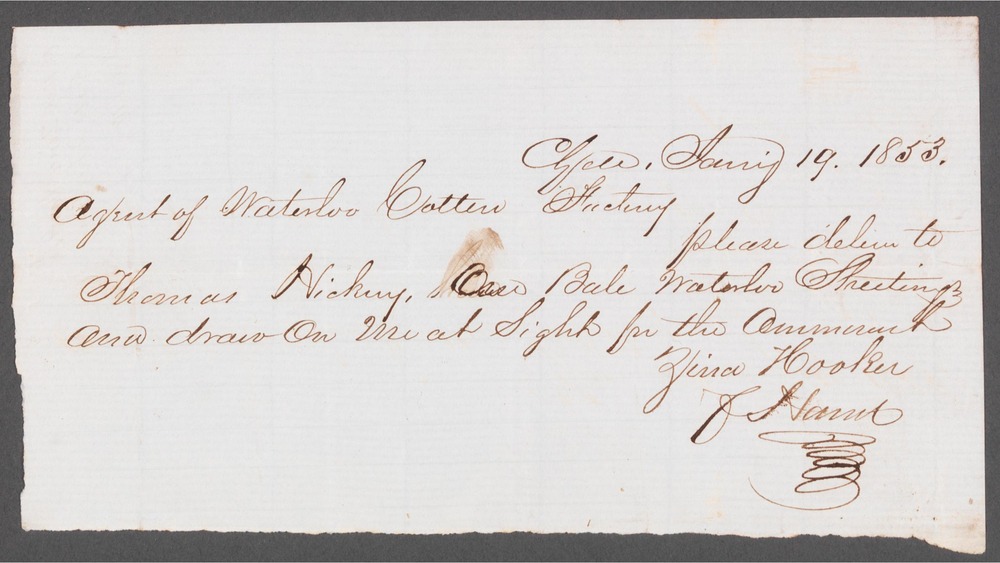 Clyde, Jan'y 19. 1853.
Agent of Waterloo Cotten Factory
please deliver to
Thomas Hickey, One Bale Waterloo Sheetings
and draw On Me at Sight for the Ammount
Zina Hooker